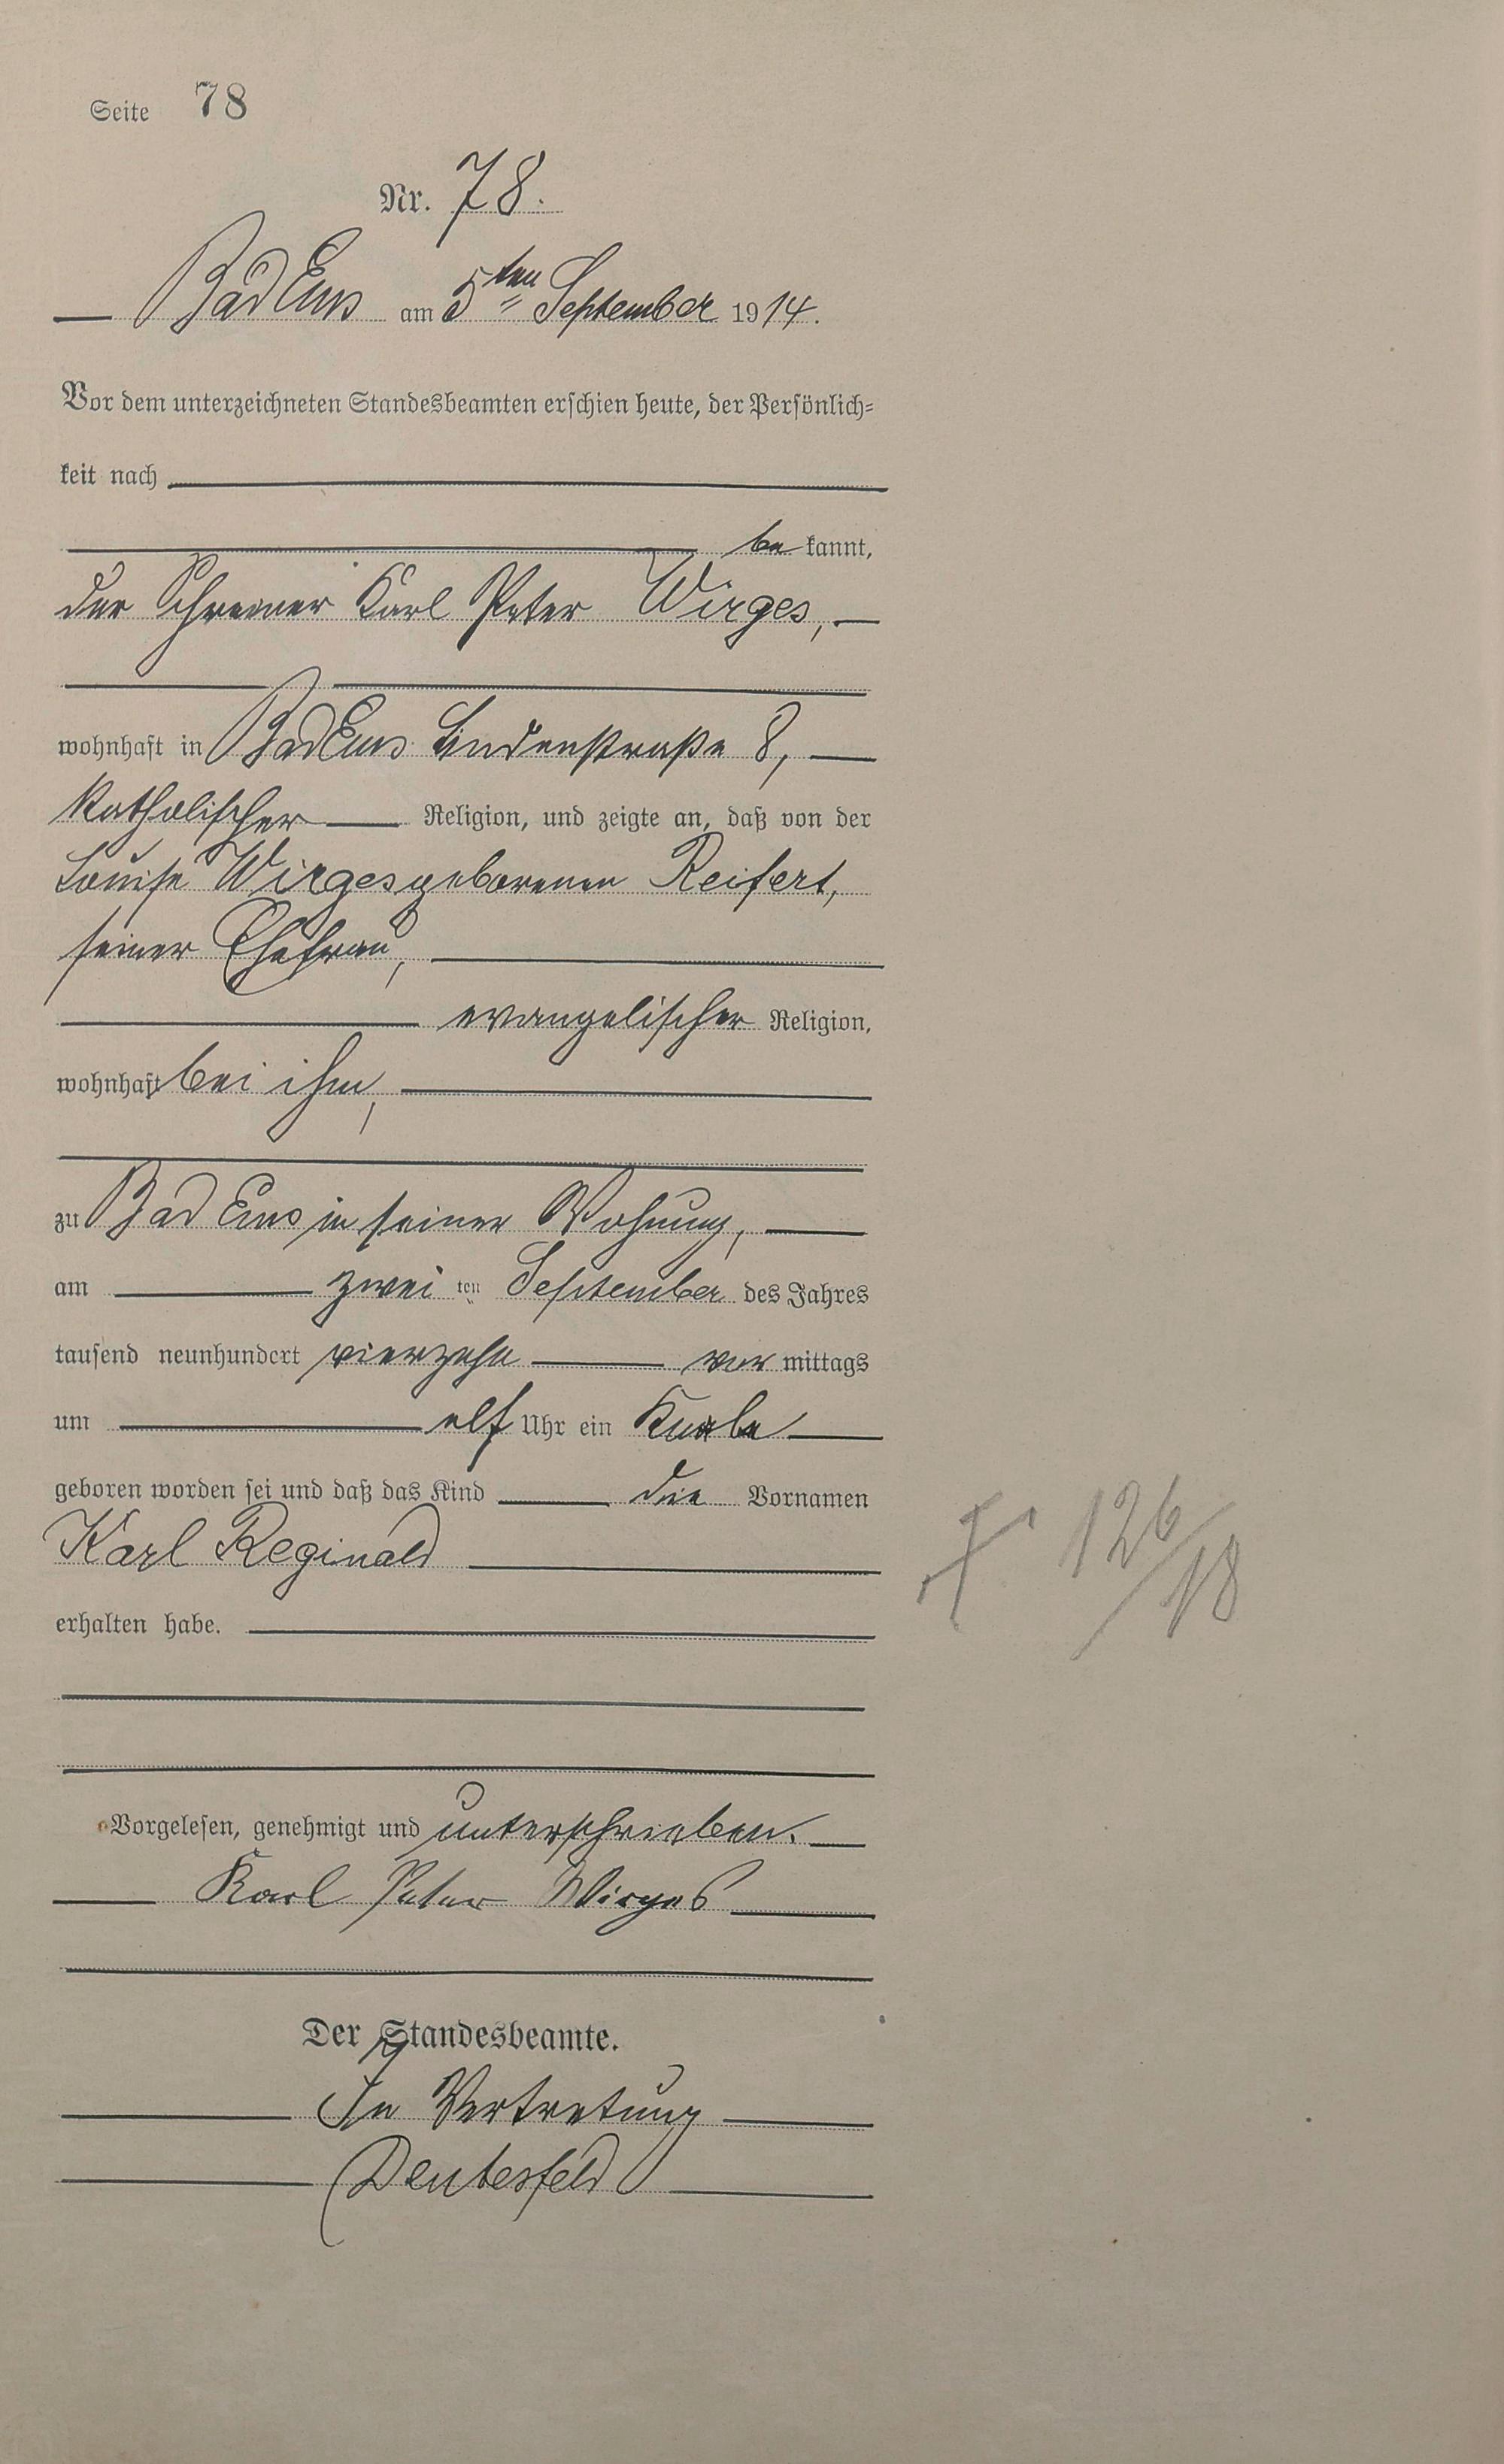 Seite 78
Nr. 78.
Bad Ems am 5ten September 1914.
Vor dem unterzeichneten Standesbeamten erschien heute, der Persönlich=
keit nach
be kannt,
der Schreiner Karl Peter Wirges,
wohnhaft in Bad Ems Lindenstraße 8,
katholischer Religion, und zeigte an, daß von der
Louise Wirges geborenen Reifert,
seiner Ehefrau,
evangelischer Religion,
wohnhaft bei ihm,
zu Bad Ems in seiner Wohnung,
am zwei ten September des Jahres
tausend neunhundert vierzehn vor mittags
um elf Uhr ein Knabe
geboren worden sei und daß das Kind die Vornamen
Karl Reginald
erhalten habe.
† 126/18
Vorgelesen, genehmigt und unterschrieben.
Karl Peter Wirges
Der Standesbeamte.
In Vertretung
Deutesfeld